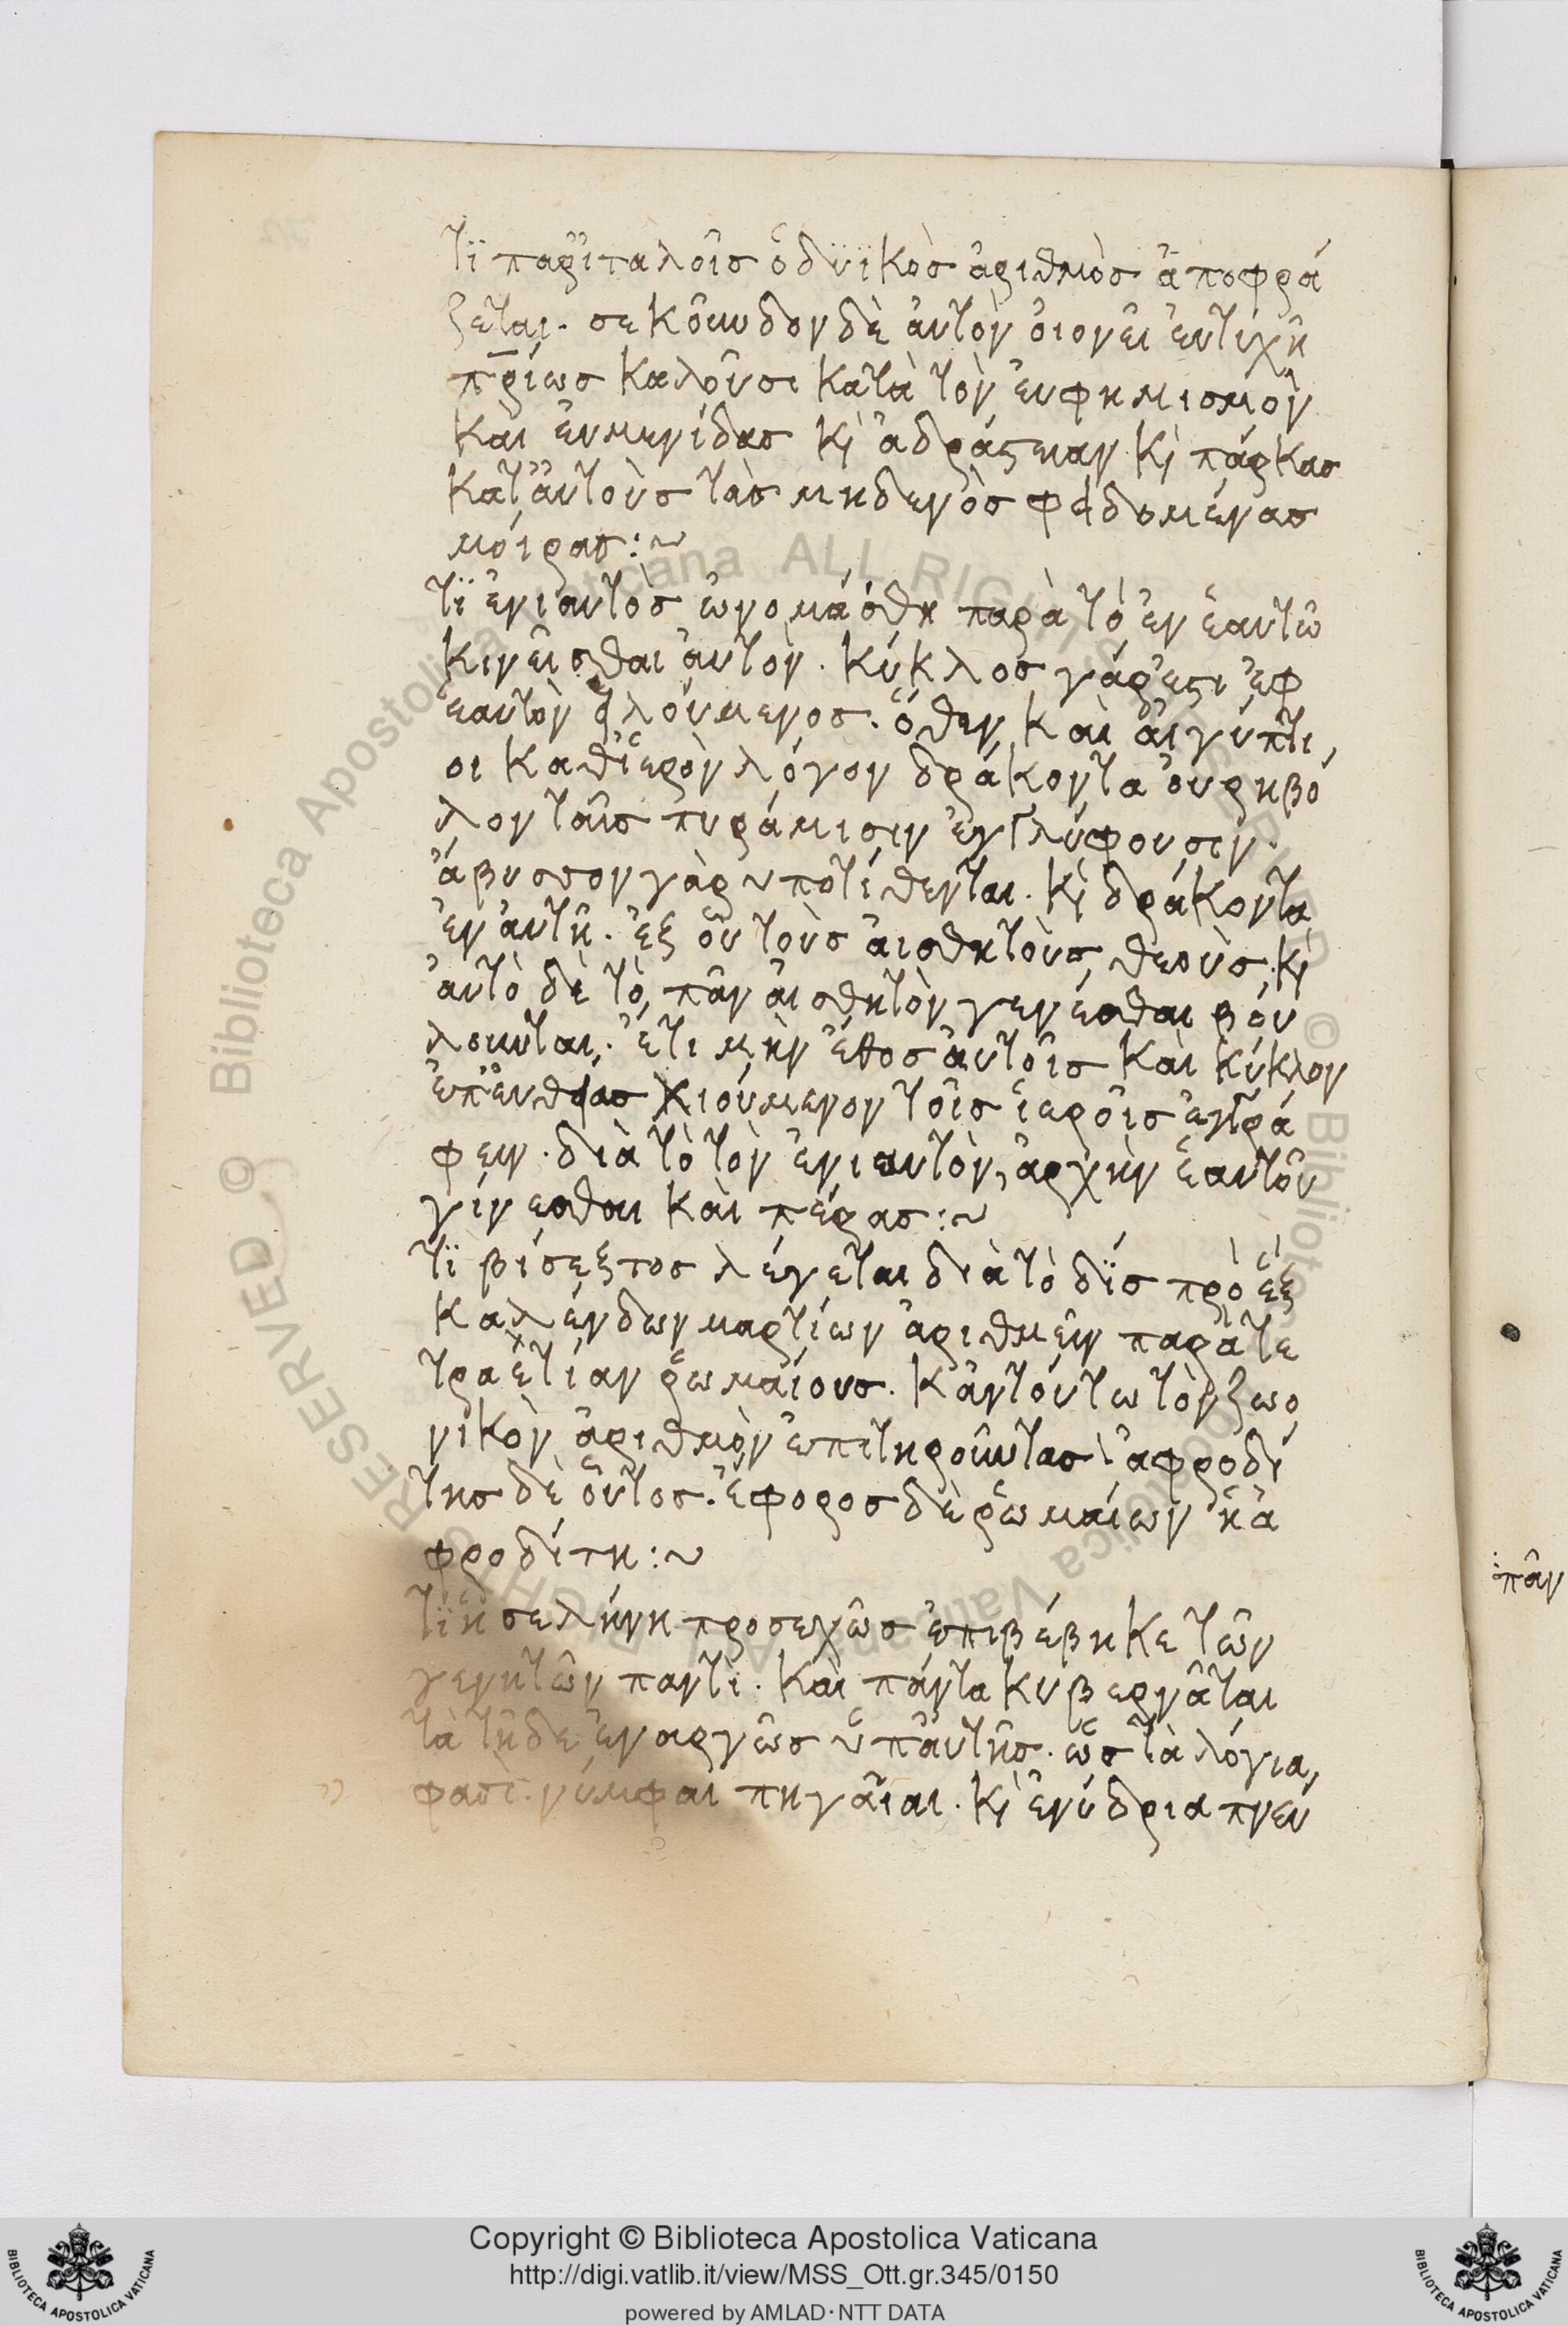 Τϊ παρ' ἰταλοῖσ ὁ δϋϊκὸσ ἀριθμὸσ ἀποφρά
ζεται. σεκοῦνδον δὲ ἀυτὸν ὁιονεὶ ἐυτυχῆ
πρίωσ καλοῦσι κατὰ τὸν ἐυφημισμὸν
καὶ ἐυμενίδασ κὶ ἀδράστειαν κὶ πάρκασ
κατ' ἀυτοὺσ τὰσ μηδενὸσ φειδομένασ
μόιρασ:~
Τϊ ἐνιαυτὸσ ὠνομάσθη παρὰ τὸ ἐν ἑαυτῶ
κινεῖσθαι ἀυτόν. κύκλοσ γάρ ἐστι ἐφ
ἑαυτὸν ἐιλούμενοσ. ὅθεν καὶ ἀιγύπτι
οι καθ' ἱερὸν λόγον δράκοντα ὀυρηβό
λον ταῖσ πυράμισιν ἐγγλύφουσιν.
ἄβυσσον γὰρ ὑποτίθενται. κὶ δράκοντα
ἐν ἀυτῆ. ἐξ οὗ τοὺσ ἀισθητοὺσ θεοὺσ. κὶ
ἀυτὸ δὲ τὸ πᾶν ἀισθητὸν γενέσθαι βόυ
λονται. ἔτι μὴν ἔθοσ ἀυτοῖσ καὶ κύκλον
ἐπ' ἐυθείασ χιούμενον τοῖσ ἱεροῖσ ἐγγρά
φειν. διὰ τὸ τὸν ἐνιαυτὸν, ἀρχὴν ἑαυτοῦ
γίνεσθαι καὶ πέρασ:~
Τϊ βίσεξτοσ λέγεται διὰ τὸ δϊσ πρὸ ἓξ
καλένδων μαρτίων ἀριθμεῖν παρὰ τε
τραετίαν ῥωμαίουσ. κἀν τούτω τὸν ζωο
νικὸν ἀριθμὸν ἐπιτηροῦντασ· ἀφροδί
τησ δὲ οὗτοσ. ἔφοροσ δὲ ῥωμαίων ἡ ἀ
φροδίτη:~
Τϊ ἡ σελήνη προσεχῶσ ἐπιβέβηκε τῶν
γενητῶν παντὶ. καὶ πάντα κυβερνᾶται
τὰ τῆδε ἐναργῶσ ὑπ' ἀυτῆσ. ὥσ τὰ λόγια,
φασὶ. νύμφαι πηγαῖαι. κὶ ἐνύδρια πνεύ
πᾶν
Copyright © Biblioteca Apostolica Vaticana
http://digi.vatlib.it/view/MSS_Ott.gr.345/0150
powered by AMLAD·NTT DATA